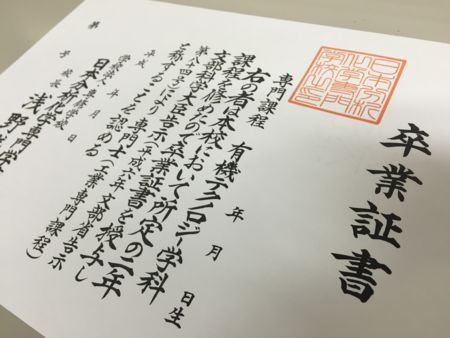 卒業証書
年 月 日生
専門課程 有機テクノロジー学科
右の者は本校において所定の二年
課程を修めたので卒業証書を授与し
文部科学大臣告示(平成六年文部省告示
第八十四号)により専門士(工業専門課程)
と称することを認める
平成 年 月 日
学校法人
日本分析化学専門学
校長 浅野
第 号